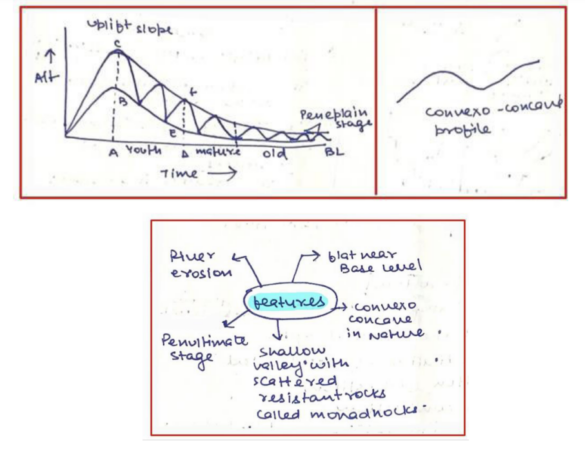 uplift slope
C
↑
Alt
B
F
E
Peneplain
stage
A Youth D mature old BL
Time →
convexo-concave
profile
River
erosion
flat near
Base level
features
convexo
concave
in nature.
Penultimate
stage
shallow
valley with
scattered
resistant rocks
called monadnocks.